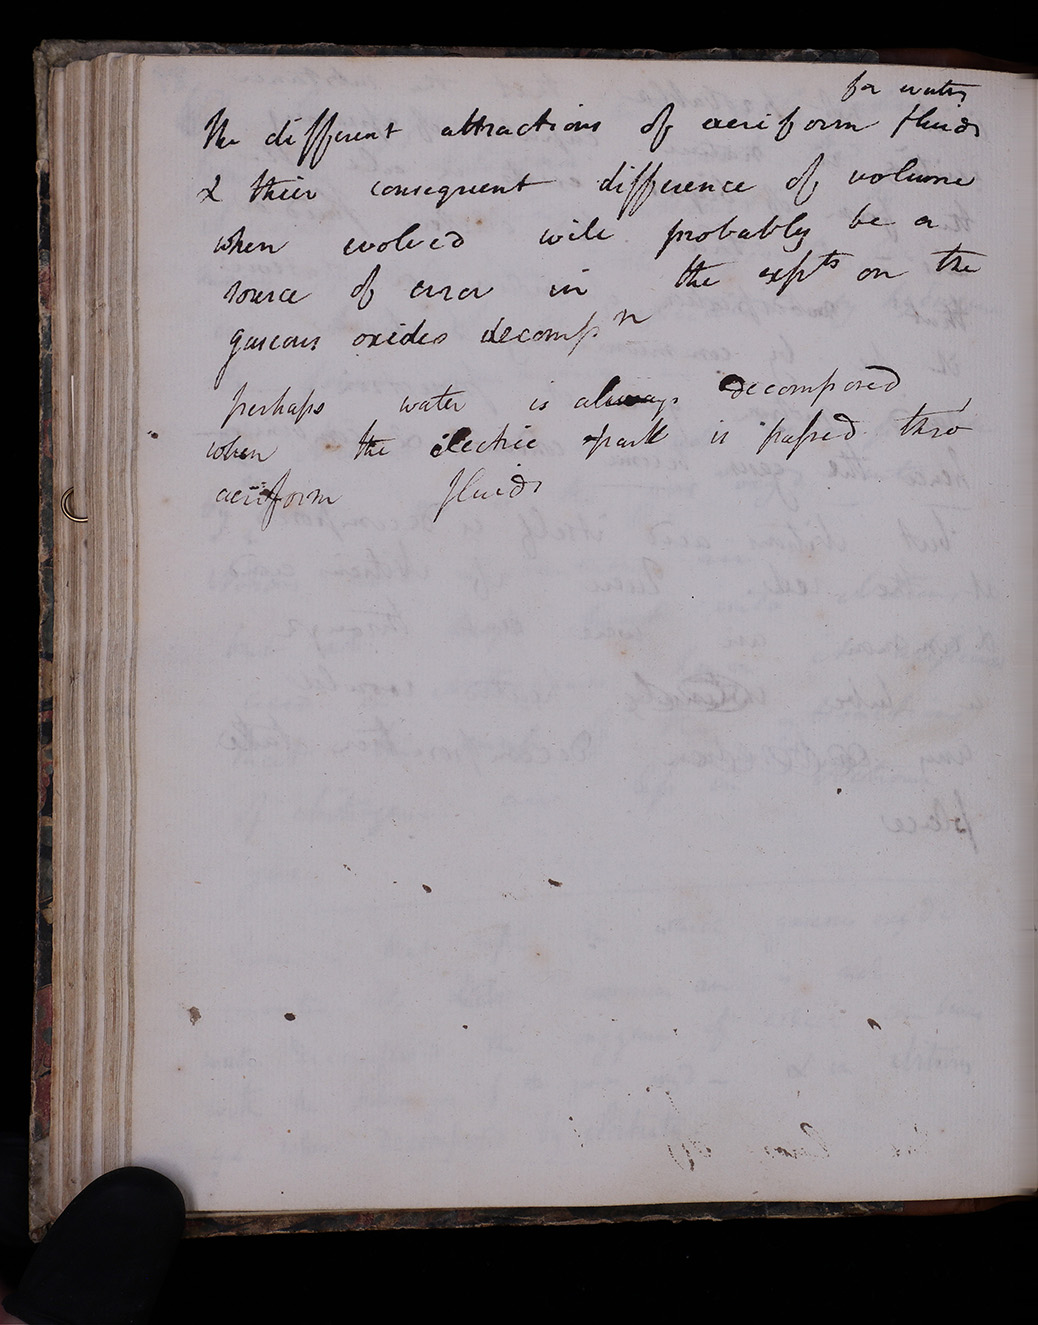 for water
The different attractions of aeriform fluids
& their consequent difference of volume
when evolved will probably be a
source of error in the expts on the
gaseous oxides decompn
perhaps water is always decomposed
when the electric spark is passed thro'
aeriform fluids